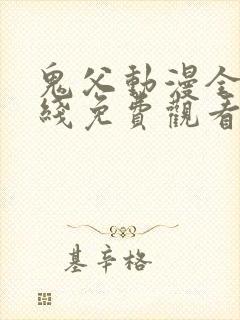 鬼父動漫全
綫免費觀看
基辛格